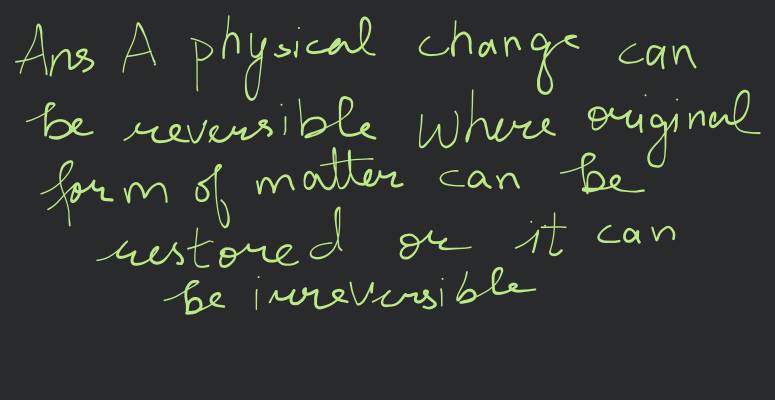 Ans A physical change can
be reversible where original
form of matter can be
restored or it can
be irreversible